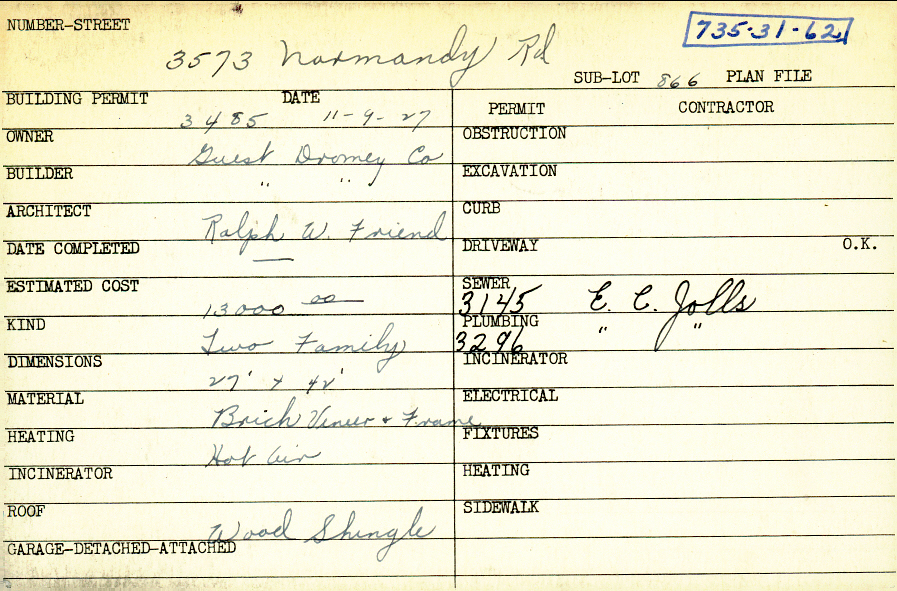 NUMBER-STREET
735-31-62
3573 Normandy Rd
SUB-LOT 866 PLAN FILE
BUILDING PERMIT DATE
3485 11-9-27
OWNER
Guest Dromey Co
BUILDER
" "
ARCHITECT
Ralph W. Friend
DATE COMPLETED
—
ESTIMATED COST
13000 00
KIND
Two Family
DIMENSIONS
27' x 42'
MATERIAL
Brick Veneer + Frame
HEATING
Hot Air
INCINERATOR
ROOF
Wood Shingle
GARAGE-DETACHED-ATTACHED
PERMIT CONTRACTOR
OBSTRUCTION
EXCAVATION
CURB
DRIVEWAY O.K.
SEWER
3145 E. C. Jolls
PLUMBING
3296 " "
INCINERATOR
ELECTRICAL
FIXTURES
HEATING
SIDEWALK